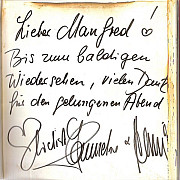 Lieber Manfred!
Bis zum baldigen
Wiedersehen, vielen Dank
für den gelungenen Abend